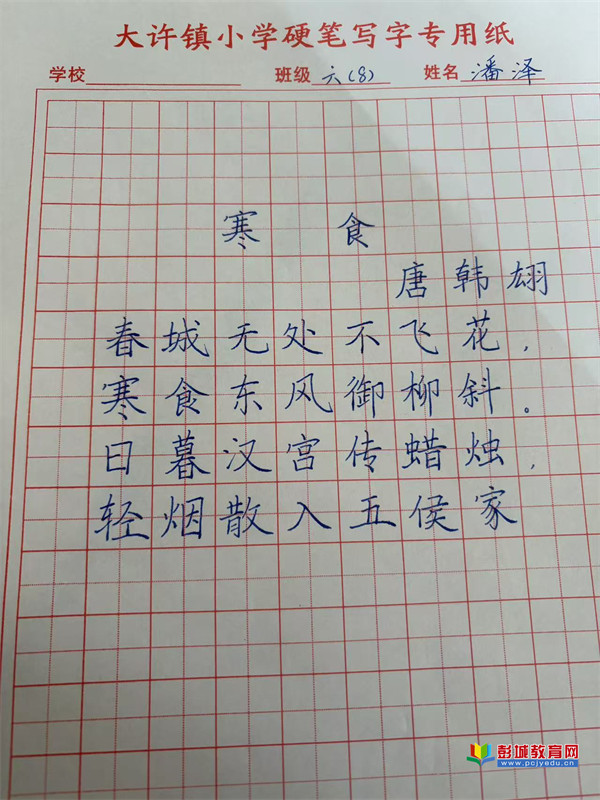 大许镇小学硬笔写字专用纸
学校 班级 六(8) 姓名 潘泽
寒食
唐 韩翃
春城无处不飞花，
寒食东风御柳斜。
日暮汉宫传蜡烛，
轻烟散入五侯家
彭城教育网
www.pcjyedu.cn